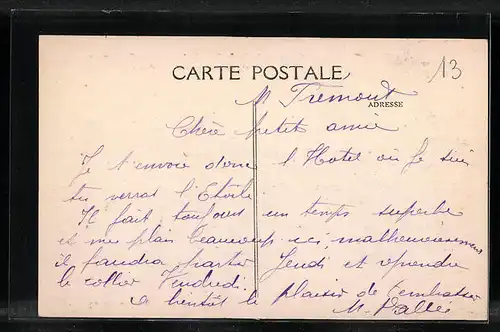 13
CARTE POSTALE
M Tremont
ADRESSE
Chère petit amie
Je t'envoie donc l'Hotel où je suis
tu verras l'Etoile
Il fait toujours un temps superbe
et me plais beaucoup ici malheureusement
il faudra partir Jeudi et reprendre
le collier Vendredi.
a bientôt le plaisir de t'embrasser
M.